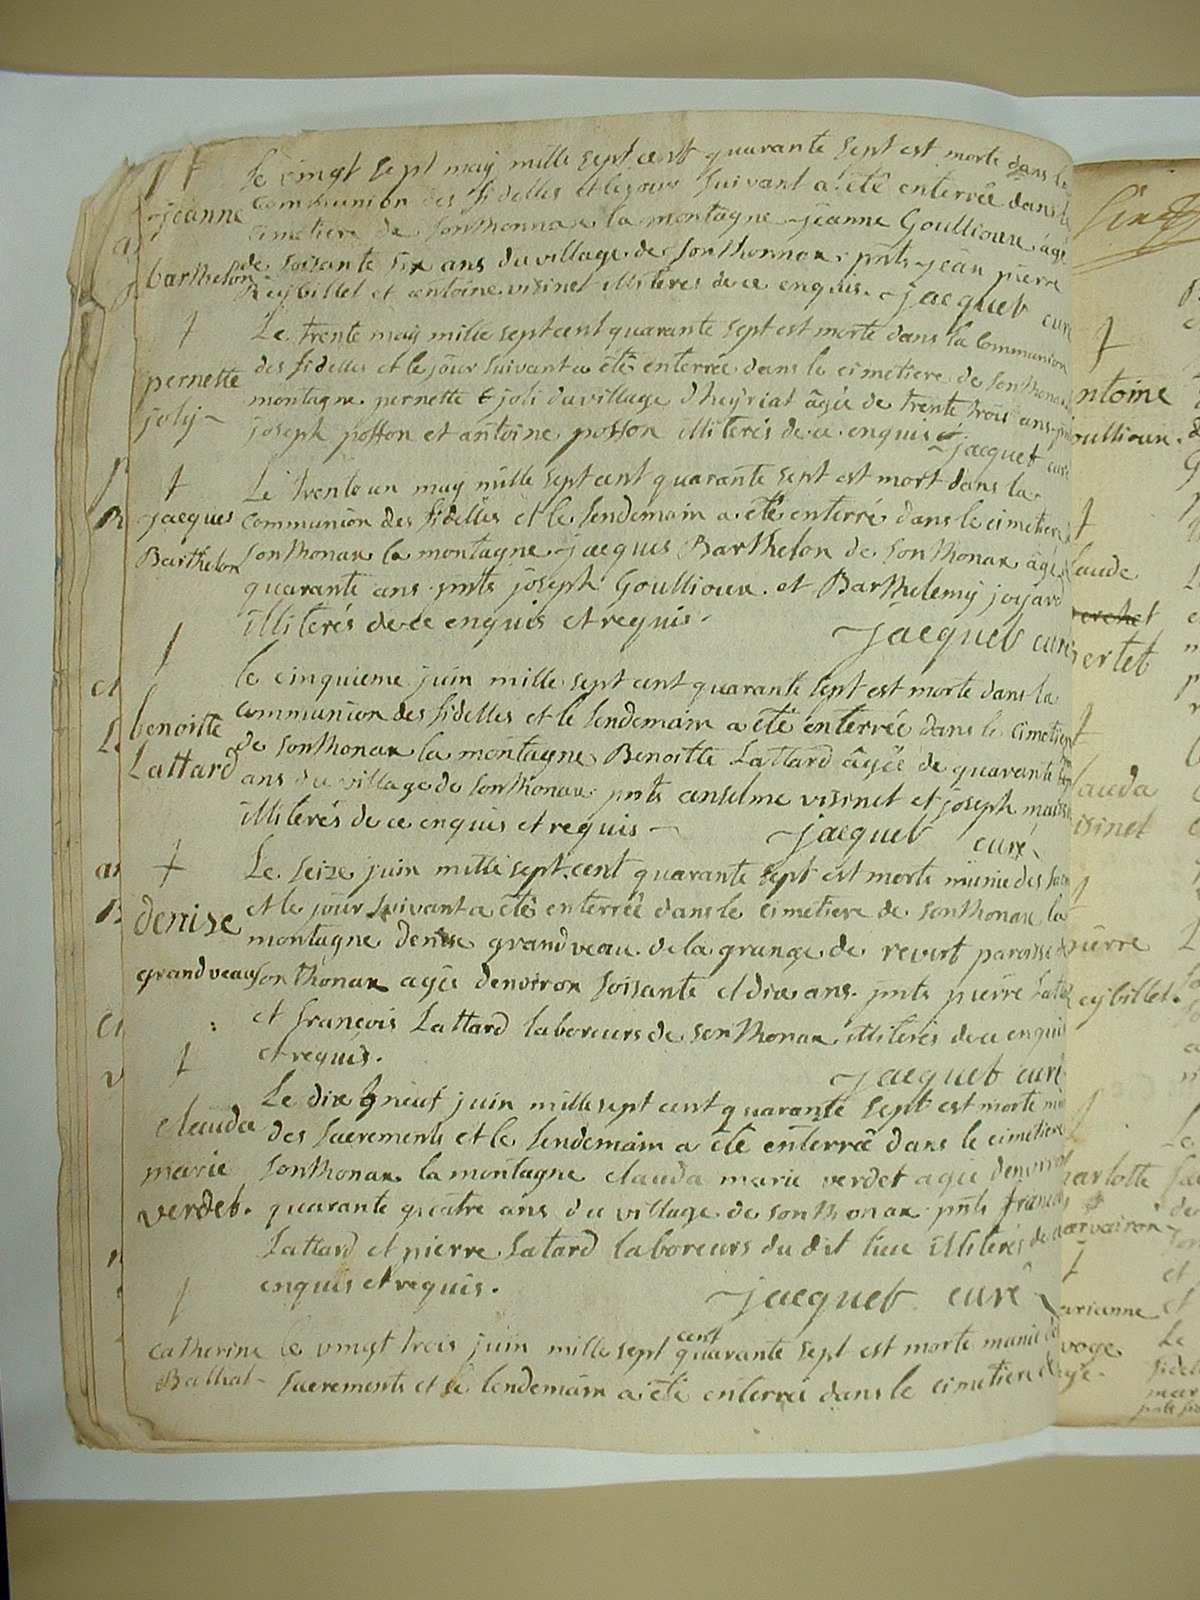 Le vingt sept may mille sept cent quarante sept est morte dans la
jeanne
communion des fidelles et le jour suivant a été enterrée dans le
cimetiere de Sonthonnax la montagne jeanne Goullioux âgée
barthelon
de soisante six ans du village de Sonthonnax pnts jean pierre
Reybillet et antoine visinet illiterés de ce enquis. jacquet curé
Le trente may mille sept cent quarante sept est morte dans la communion
des fidelles et le jour suivant a été enterrée dans le cimetiere de Sonthonax
pernette
montagne pernette joli du village d'heyriat âgée de trente trois ans pnts
joly
joseph posson et antoine posson illiterés de ce enquis jacquet curé
Le trente un may mille sept cent quarante sept est mort dans la
jacques
communion des fidelles et le lendemain a été enterré dans le cimetiere
Barthelon
Sonthonax la montagne jacques Barthelon de Sonthonax âgé
quarante ans pnts joseph Goullioux et Barthelemy joyard
illiterés de ce enquis et requis.
jacquet curé
le cinquieme juin mille sept cent quarante sept est morte dans la
benoitte
communion des fidelles et le lendemain a été enterrée dans le cimetiere
Lattard
de Sonthonax la montagne Benoitte Lattard âgée de quarante
ans du village de Sonthonax pnts anselme visinet et joseph
illiterés de ce enquis et requis
jacquet curé
Le seize juin mille sept cent quarante sept est morte munie des
denise
et le jour suivant a été enterrée dans le cimetiere de Sonthonax la
montagne denise grandveau de la grange de revert paroisse
grandveau
Sonthonax agée denviron soisante et dix ans. pnts pierre
et françois Lattard laboreurs de Sonthonax illiterés de ce enquis
et requis.
jacquet curé
Le dix neuf juin mille sept cent quarante sept est morte
clauda
des sacrements et le lendemain a été enterrée dans le cimetiere
marie
Sonthonax la montagne clauda marie verdet agée denviron
verdet.
quarante quatre ans du village de Sonthonax pnts françois
Lattard et pierre Latard laboreurs du dit lieu illiterés de ce
enquis et requis.
jacquet curé
catherine
le vingt trois juin mille sept cent quarante sept est morte munie des
Balliat
sacrements et le lendemain a été enterrée dans le cimetiere de
ntoine
oullioux.
laude
ertet
lauda
isinet
ierre
eybillet.
harlotte
arvairon
arianne
voge